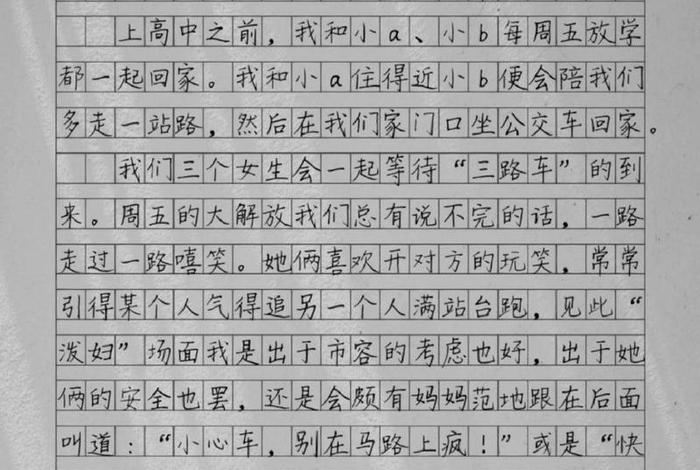 上高中之前，我和小a、小b每周五放学
都一起回家。我和小a住得近小b便会陪我们
多走一站路，然后在我们家门口坐公交车回家。
我们三个女生会一起等待“三路车”的到
来。周五的大解放我们总有说不完的话，一路
走过一路嘻笑。她俩喜欢开对方的玩笑，常常
引得某个人气得追另一个人满站台跑，见此“
泼妇”场面我是出于市容的考虑也好，出于她
俩的安全也罢，还是会颇有妈妈范地跟在后面
叫道：“小心车，别在马路上疯！”或是“快